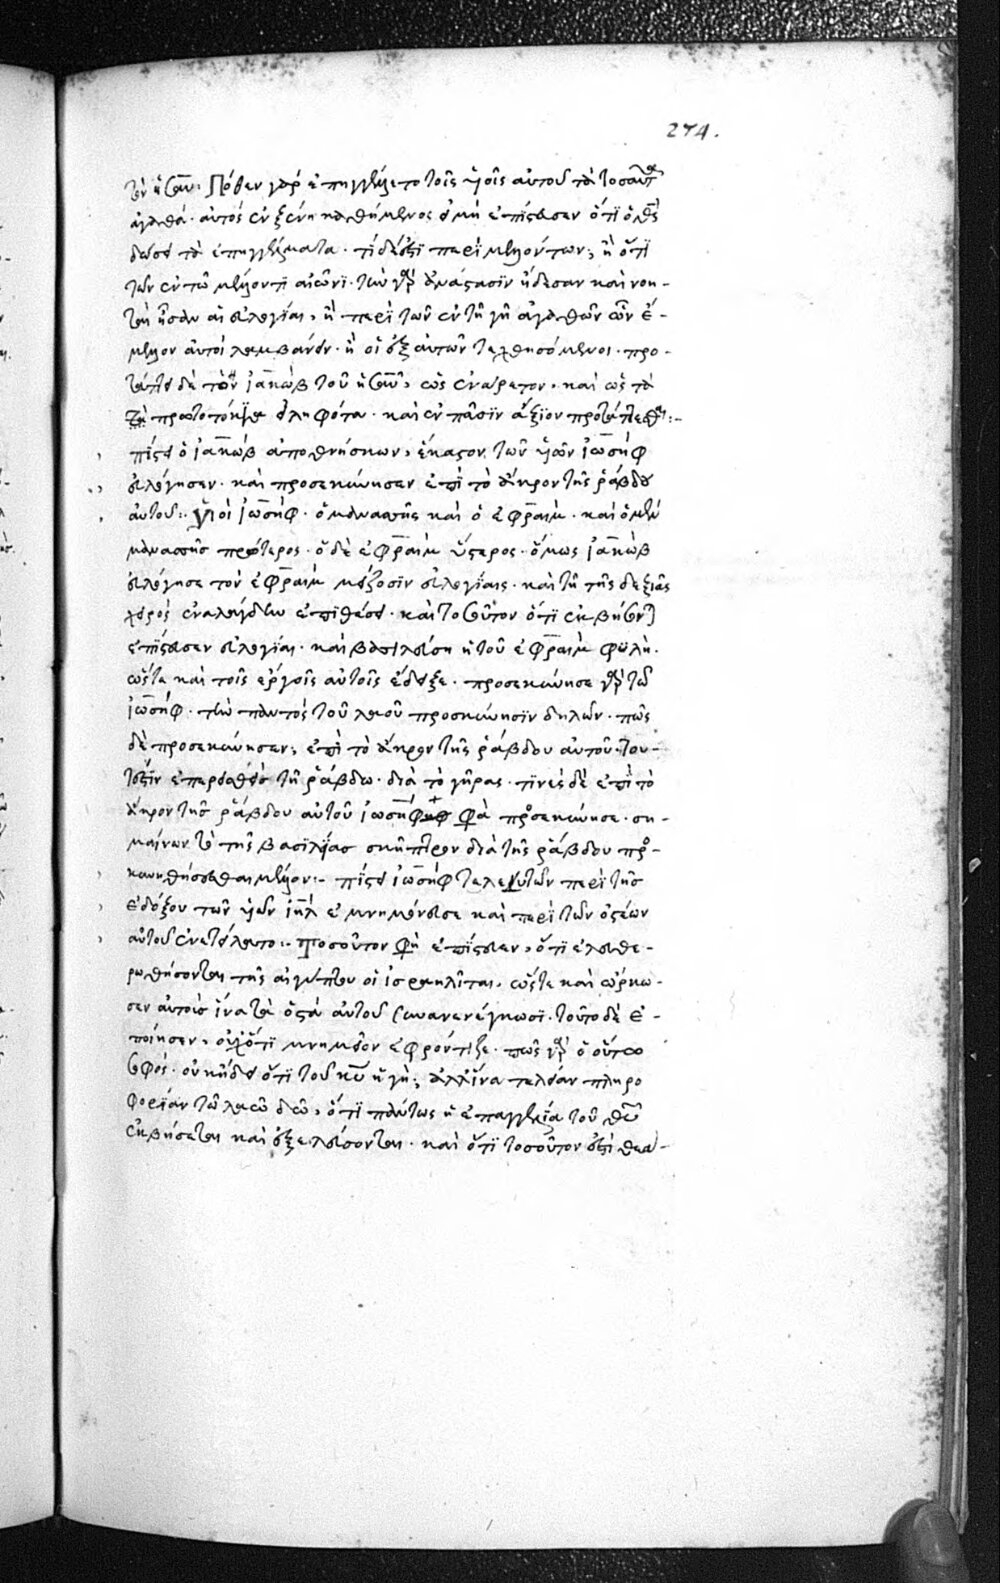 274.
τὸν ἠσαῦ· Πόθεν γὰρ ἐπηγγέλλετο τοῖς υἱοῖς αὐτοῦ τὰ τοσαῦτα
ἀγαθά· αὐτὸς ἐν ξένῃ καθήμενος εἰ μὴ ἐπίστευσεν ὅτι ὁ θς
δώσει τὰ ἐπηγγελμένα· τί δέ ἐστι περὶ μελλόντων; ἢ ὅτι
τῶν ἐν τῷ μέλλοντι αἰῶνι· τὴν γὰρ ἀνάστασιν ᾔδεσαν καὶ νοη-
ταὶ ἦσαν αἱ εὐλογίαι, ἢ περὶ τῶν ἐν τῇ γῇ ἀγαθῶν ὧν ἔ-
μελλον αὐτοὶ λαμβάνειν· ἢ οἱ ἐξ αὐτῶν τεχθησόμενοι· προ-
τάττει δὲ τὸν ἰακὼβ τοῦ ἠσαῦ, ὡς ἐνάρετον, καὶ ὡς τὰ
πρωτοτόκια εἰληφότα· καὶ ἐν πᾶσιν ἄξιον προτάττεσθαι:-
πίστει ὁ ἰακὼβ ἀποθνήσκων, ἕκαστον τῶν υἱῶν ἰωσὴφ
εὐλόγησεν· καὶ προσεκύνησεν ἐπὶ τὸ ἄκρον τῆς ῥάβδου
αὐτοῦ:· Υἱοὶ ἰωσὴφ· ὁ μανασσῆς καὶ ὁ ἐφραὶμ· καὶ ὁ μὲν
μανασσῆς πρότερος· ὁ δὲ ἐφραὶμ ὕστερος· ὅμως ἰακὼβ
εὐλόγησε τὸν ἐφραὶμ μείζοσιν εὐλογίαις· καὶ τῇ τῆς δεξιᾶς
χειρὸς ἐναλλάγδην ἐπιθέσει· καὶ τοσοῦτον ὅτι ἐκβήσεται
ἐπίστευσεν εὐλογίαι· καὶ βασιλεύσῃ ἡ τοῦ ἐφραὶμ φυλὴ·
ὥστε καὶ τοῖς ἔργοις αὐτοῖς ἔδειξε· προσεκύνησε γὰρ τῷ
ἰωσὴφ· τὴν παντὸς τοῦ λαοῦ προσκύνησιν δηλῶν· πῶς
δὲ προσεκύνησεν; ἐπὶ τὸ ἄκρον τῆς ῥάβδου αὐτοῦ· του-
τέστιν ἐπερεισθεὶς τῇ ῥάβδῳ· διὰ τὸ γῆρας· τινὲς δὲ ἐπὶ τὸ
ἄκρον τῆς ῥάβδου αὐτοῦ ἰωσὴφ φασὶ προσεκύνησε· ση-
μαίνων τὸ τῆς βασιλείας σκῆπτρον διὰ τῆς ῥάβδου προσ-
κυνηθήσεσθαι μέλλον:- πίστει ἰωσὴφ τελευτῶν περὶ τῆς
ἐξόδου τῶν υἱῶν ιηλ ἐμνημόνευσε καὶ περὶ τῶν ὀστέων
αὐτοῦ ἐνετείλατο:- Τοσοῦτον φησὶ ἐπίστευσεν, ὅτι ἐλευθε-
ρωθήσονται τῆς αἰγύπτου οἱ ἰσραηλῖται, ὥστε καὶ ὥρκω-
σεν αὐτοὺς ἵνα τὰ ὀστᾶ αὐτοῦ συνανενέγκωσι· τοῦτο δὲ ἐ-
ποίησεν, οὐχ ὅτι μνημεῖον ἐφρόντιζε· πῶς γὰρ ὁ οὕτω
σοφός· οὐκ ᾔδει ὅτι τοῦ κυ ἡ γῆ; ἀλλ' ἵνα τελείαν πληρο
φορίαν τῷ λαῷ δῷ, ὅτι πάντως ἡ ἐπαγγελία τοῦ θεοῦ
ἐκβήσεται καὶ ἐξελεύσονται· καὶ ὅτι τοσοῦτον ἐστὶ θεα-